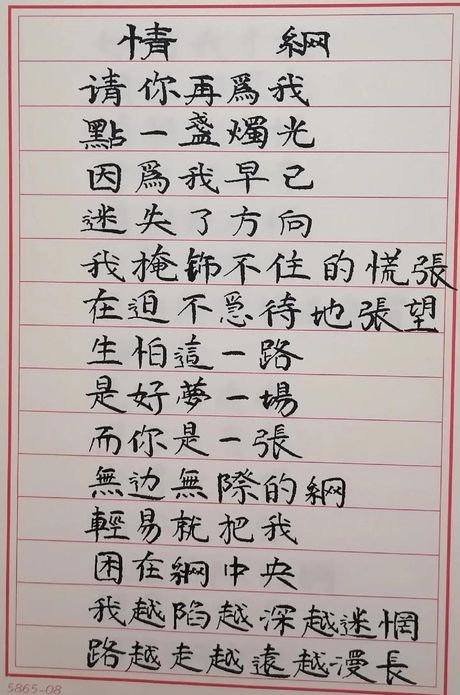 情 網
请你再爲我
點一盞燭光
因爲我早已
迷失了方向
我掩飾不住的慌張
在迫不急待地張望
生怕這一路
是好夢一場
而你是一張
無边無際的網
輕易就把我
困在網中央
我越陷越深越迷惘
路越走越遠越漫長
5865-08